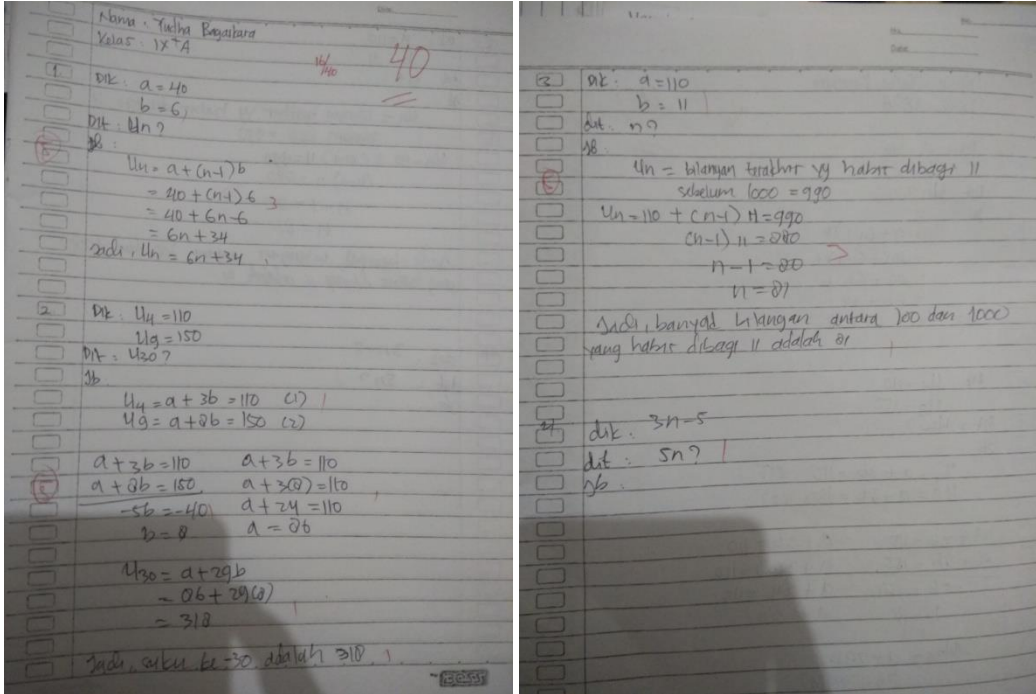 Nama : Yudha Bagaskara
Kelas : IX+A
40
1. Dik : a = 40
b = 6
Dit : Un ?
Jb :
Un = a + (n-1) b
= 40 + (n-1) 6
3
= 40 + 6n - 6
= 6n + 34
Jadi, Un = 6n + 34
2. Dik : U4 = 110
U9 = 150
Dit : U30 ?
Jb
U4 = a + 3b = 110 (1)
U9 = a + 8b = 150 (2)
a + 3b = 110 a + 3b = 110
a + 8b = 150 a + 3(8) = 110
-5b = -40 a + 24 = 110
b = 8 a = 86
U30 = a + 29b
= 86 + 29(8)
= 318
Jadi, suku ke-30 adalah 318
3 Dik : a = 110
b = 11
dit : n ?
Jb
Un = bilangan terakhir yg habis dibagi 11
sebelum 1000 = 990
Un = 110 + (n-1) 11 = 990
(n-1) 11 = 880
n - 1 = 80
n = 81
Jadi, banyak bilangan antara 100 dan 1000
yang habis dibagi 11 adalah 81
4 dik : 3n-5
dit : Sn ?
Jb :